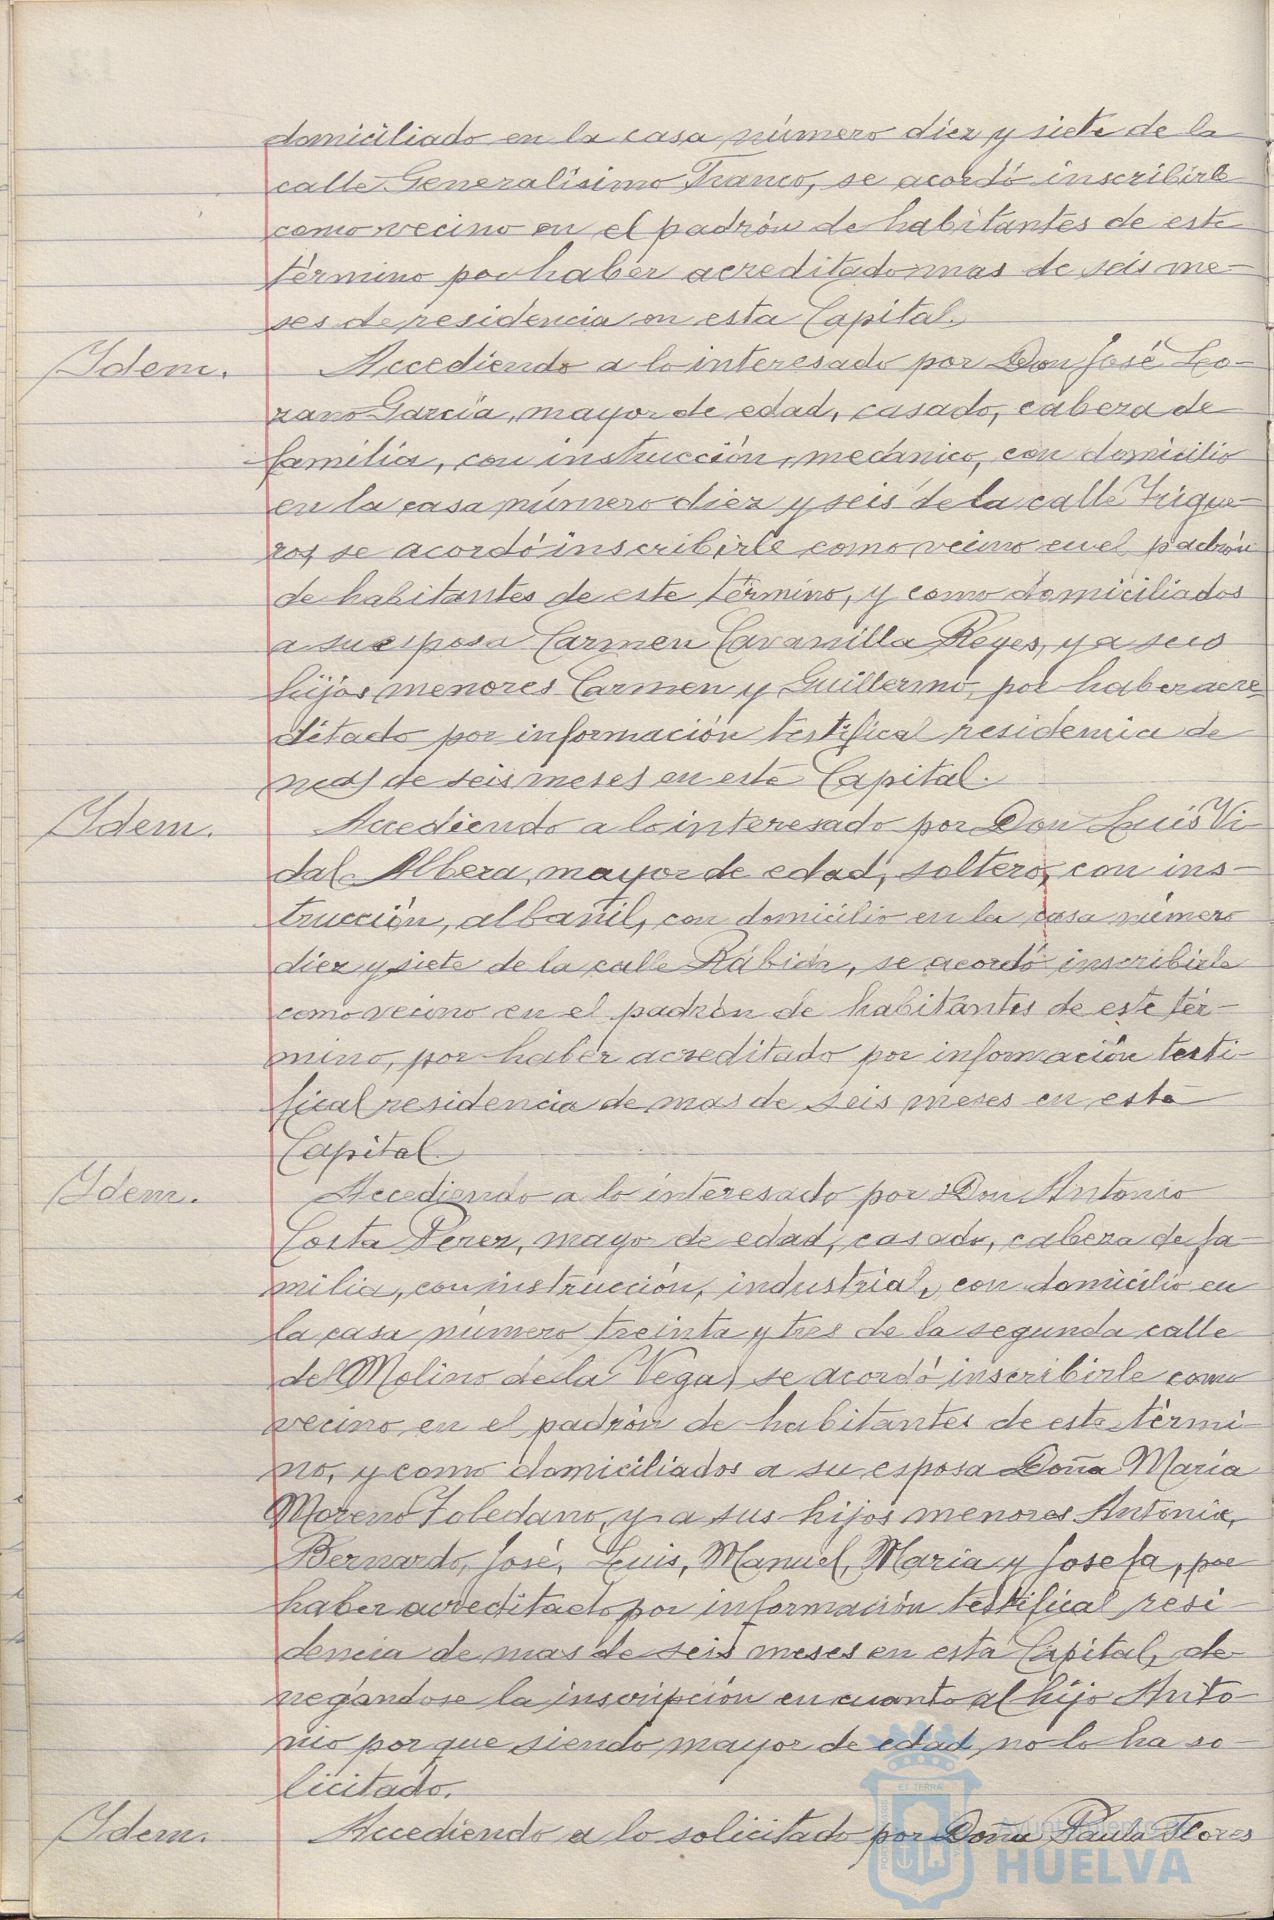 domiciliado en la casa número diez y siete de la
calle Generalísimo Franco, se acordó inscribirle
como vecino en el padrón de habitantes de este
término por haber acreditado mas de seis me-
ses de residencia en esta Capital.
Idem. Accediendo a lo interesado por Don José Lo-
zano García, mayor de edad, casado, cabeza de
familia, con instrucción, mecánico, con domicilio
en la casa número diez y seis de la calle Trigue-
ros, se acordó inscribirle como vecino en el padrón
de habitantes de este término, y como domiciliados
a su esposa Carmen Cavanilla Reyes, y a sus
hijos menores Carmen y Guillermo, por haber acre-
ditado por información testifical residencia de
mas de seis meses en esta Capital.
Idem. Accediendo a lo interesado por Don Luis Vi-
dal Albera, mayor de edad, soltero, con ins-
trucción, albañil, con domicilio en la casa número
diez y siete de la calle Rábida, se acordó inscribirle
como vecino en el padrón de habitantes de este tér-
mino, por haber acreditado por información testi-
fical residencia de mas de seis meses en esta
Capital.
Idem. Accediendo a lo interesado por Don Antonio
Costa Perez, mayor de edad, casado, cabeza de fa-
milia, con instrucción, industrial, con domicilio en
la casa número treinta y tres de la segunda calle
del Molino de la Vega, se acordó inscribirle como
vecino en el padrón de habitantes de este térmi-
no, y como domiciliados a su esposa Doña María
Moreno Toledano, y a sus hijos menores Antonia,
Bernardo, José, Luis, Manuel, María y Josefa, por
haber acreditado por información testifical resi-
dencia de mas de seis meses en esta Capital, de-
negándose la inscripción en cuanto al hijo Anto-
nio porque siendo mayor de edad no lo ha so-
licitado.
Idem. Accediendo a lo solicitado por Doña Paula Flores
Ayuntamiento de
HUELVA